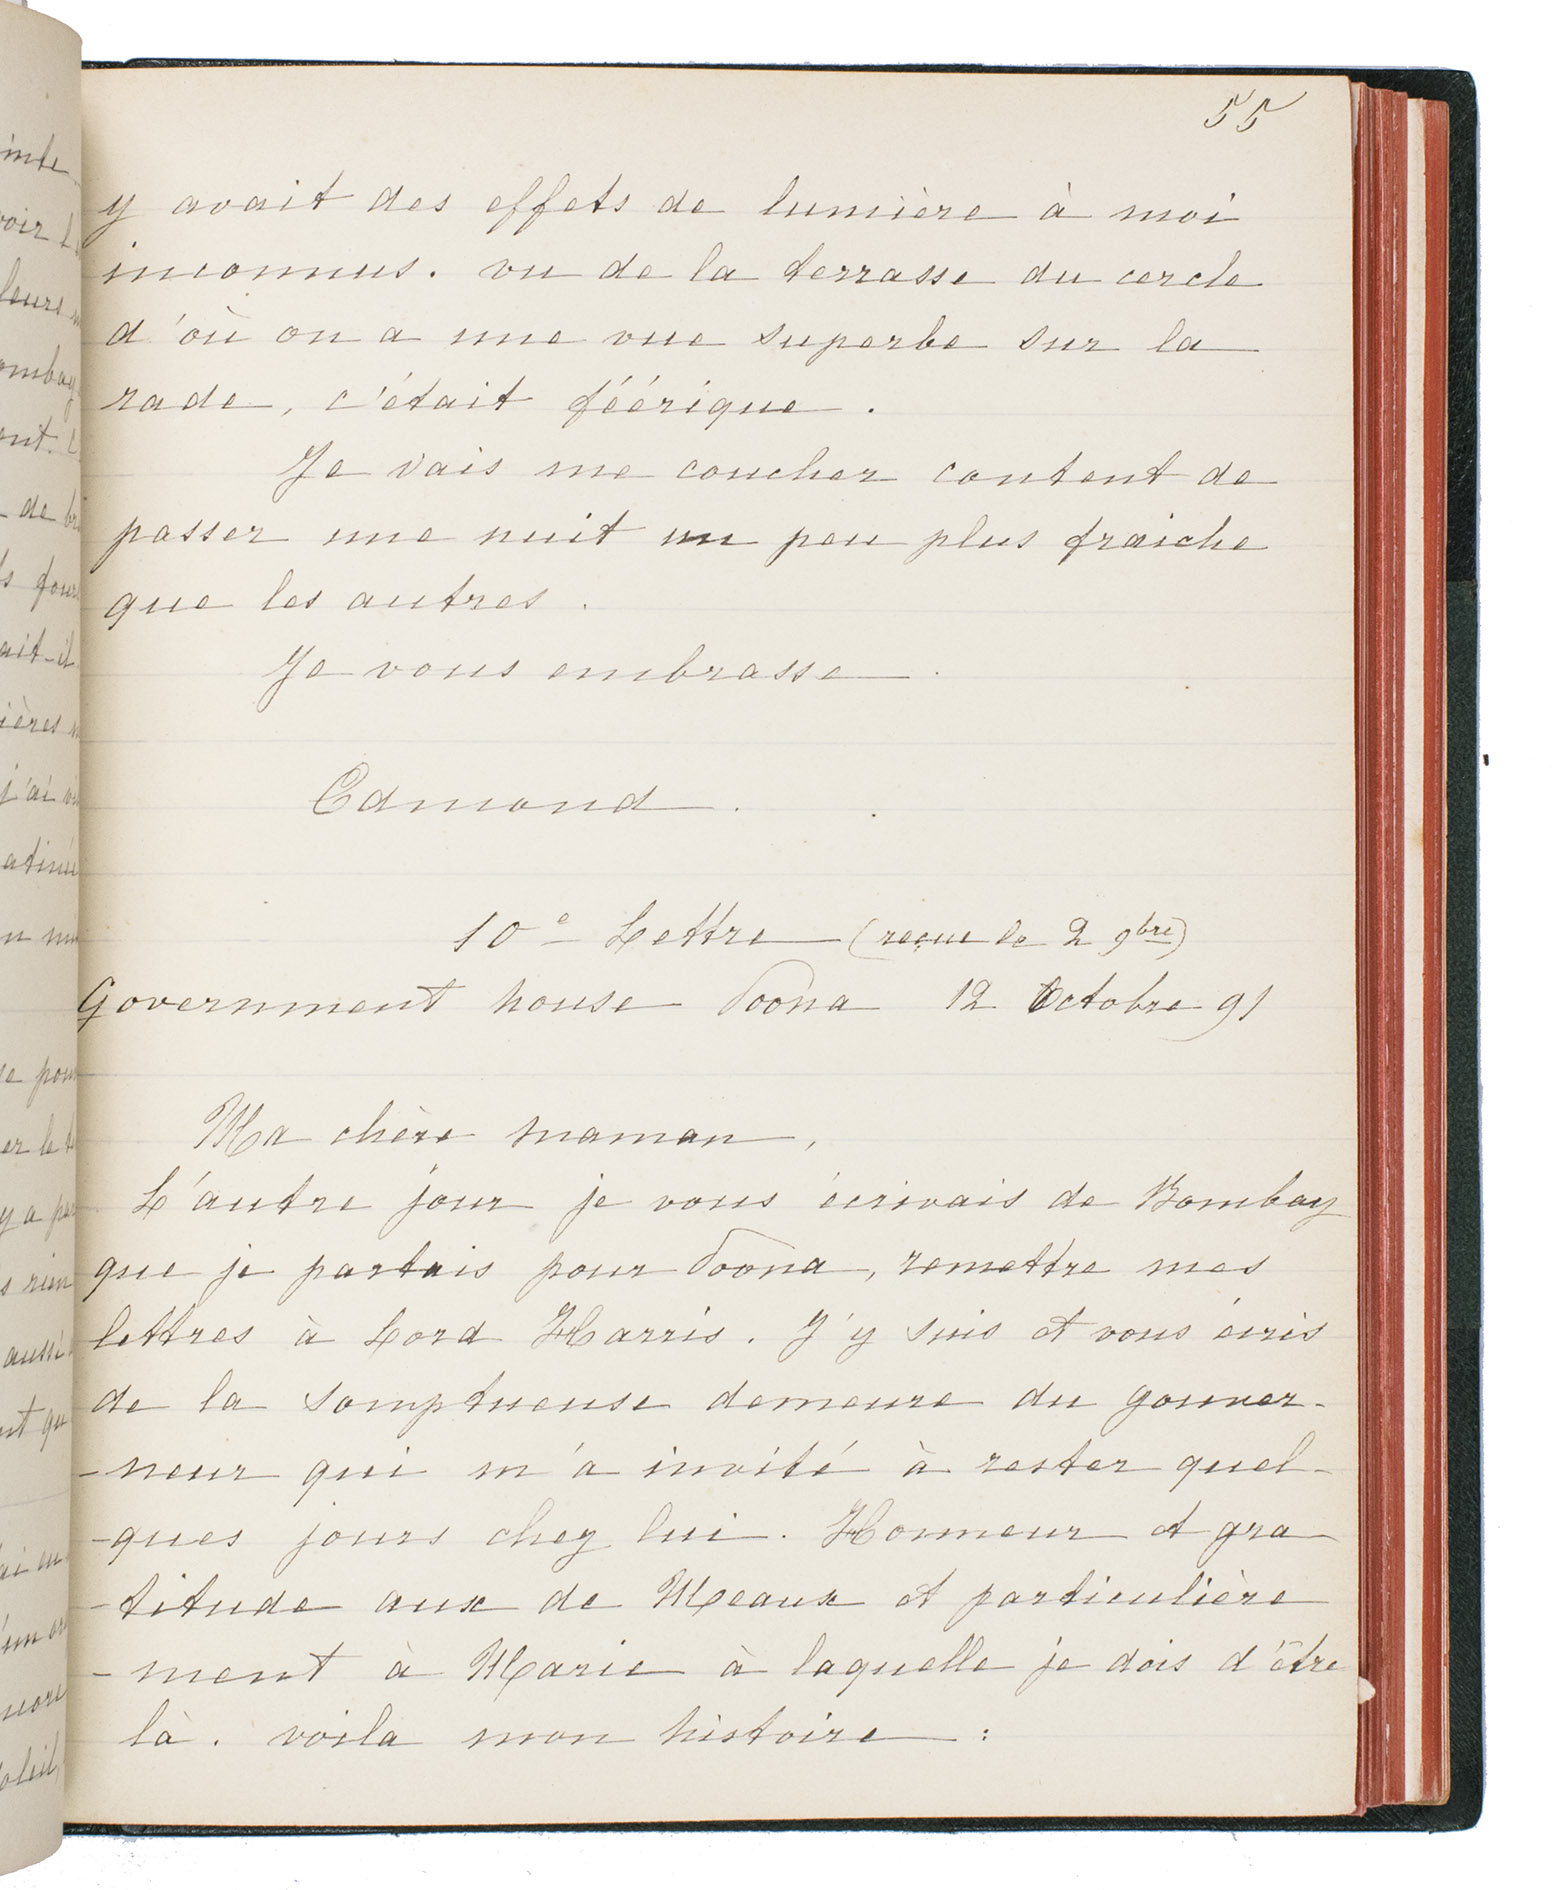 55
y avait des effets de lumière à moi
inconnus. vu de la terrasse du cercle
d'où on a une vue superbe sur la
rade, c'était féérique.
Je vais me coucher content de
passer une nuit un peu plus fraiche
que les autres.
Je vous embrasse.
Edmond.
10e Lettre (reçue le 2 9bre)
Government house Poona 12 Octobre 91
Ma chère maman,
L'autre jour je vous écrivais de Bombay
que je partais pour Poona, remettre mes
lettres à Lord Harris. J'y suis et vous écris
de la somptueuse demeure du gouver-
-neur qui m'a invité à rester quel-
-ques jours chez lui. Honneur et gra
-titude aux de Meaux et particulière
-ment à Marie à laquelle je dois d'être
là. voila mon histoire :